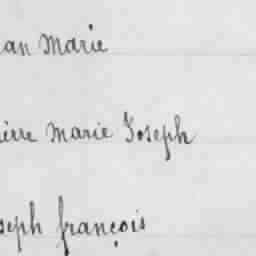 an Marie
ierre Marie Joseph
seph françois